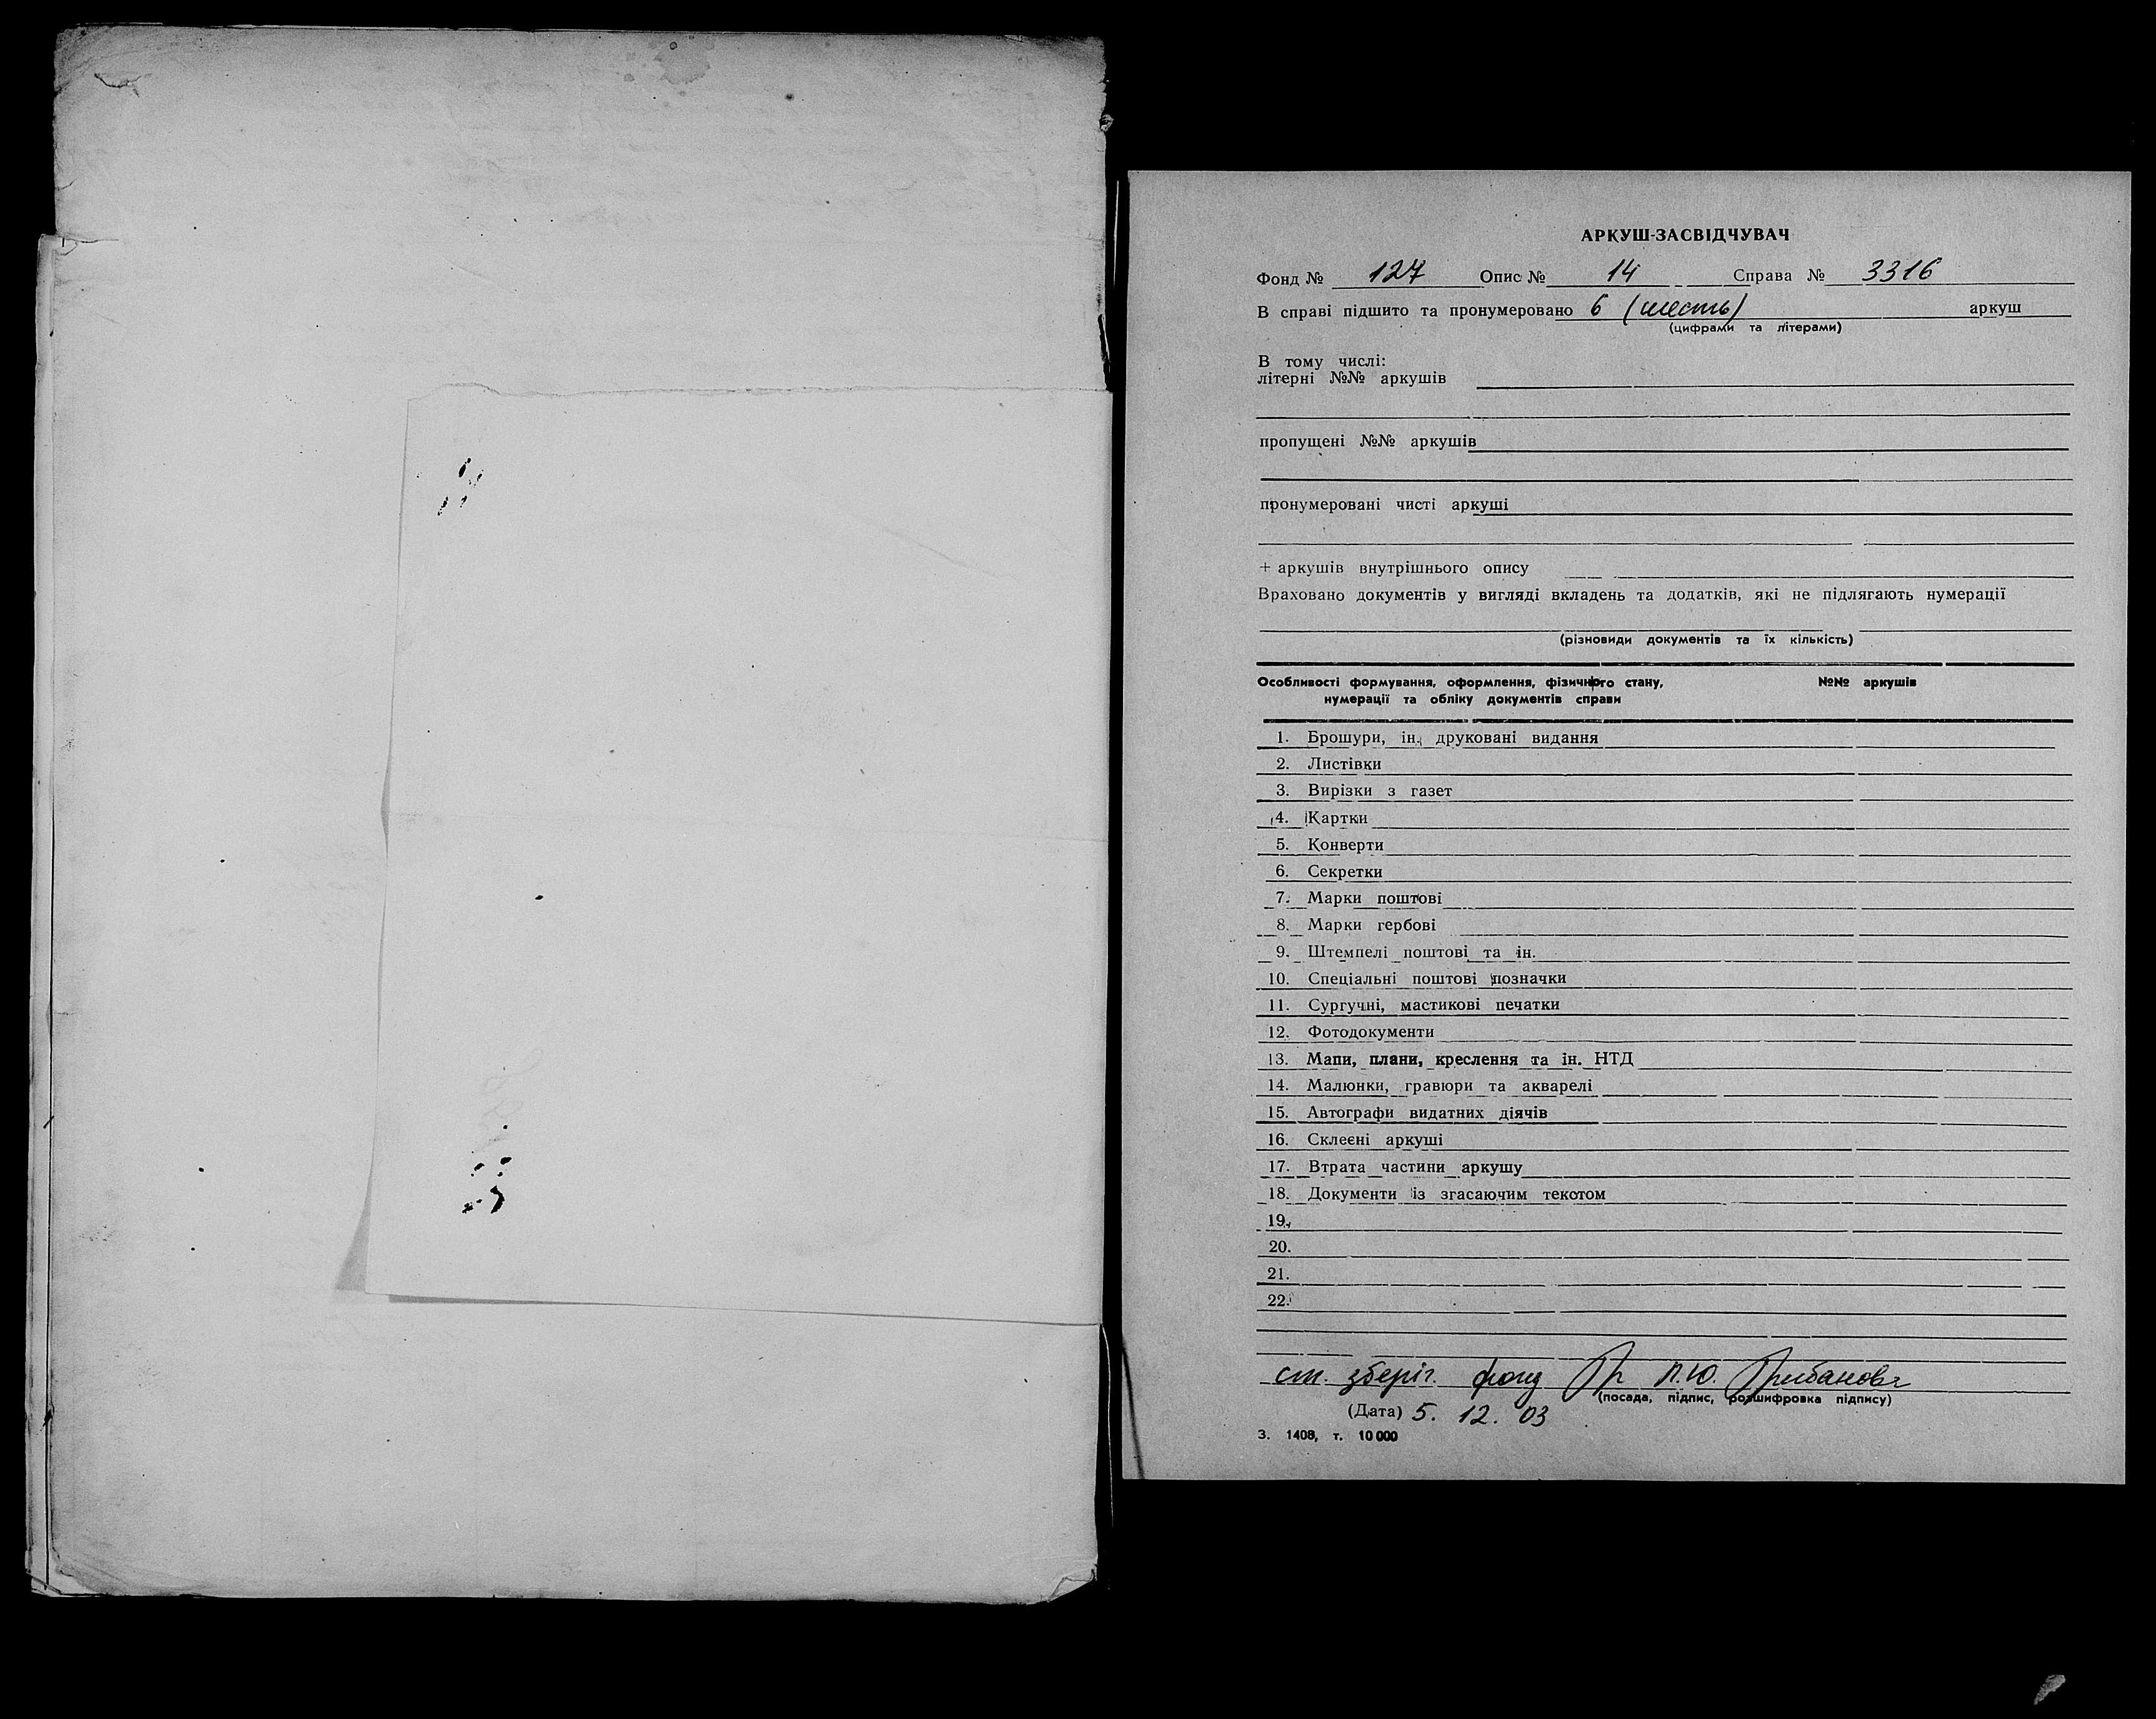 АРКУШ-ЗАСВІДЧУВАЧ
Фонд № 127 Опис № 14 Справа № 3316
В справі підшито та пронумеровано 6 (шесть) аркуш
(цифрами та літерами)
В тому числі:
літерні №№ аркушів
пропущені №№ аркушів
пронумеровані чисті аркуші
+ аркушів внутрішнього опису
Враховано документів у вигляді вкладень та додатків, які не підлягають нумерації
(різновиди документів та їх кількість)
Особливості формування, оформлення, фізичного стану, №№ аркушів
нумерації та обліку документів справи
1. Брошури, ін. друковані видання
2. Листівки
3. Вирізки з газет
4. Картки
5. Конверти
6. Секретки
7. Марки поштові
8. Марки гербові
9. Штемпелі поштові та ін.
10. Спеціальні поштові позначки
11. Сургучні, мастикові печатки
12. Фотодокументи
13. Мапи, плани, креслення та ін. НТД
14. Малюнки, гравюри та акварелі
15. Автографи видатних діячів
16. Склеєні аркуші
17. Втрата частини аркушу
18. Документи із згасаючим текстом
19.
20.
21.
22.
ст. зберіг. фонд
(посада, підпис, розшифровка підпису)
(Дата) 5. 12. 03
З. 1408, т. 10 000